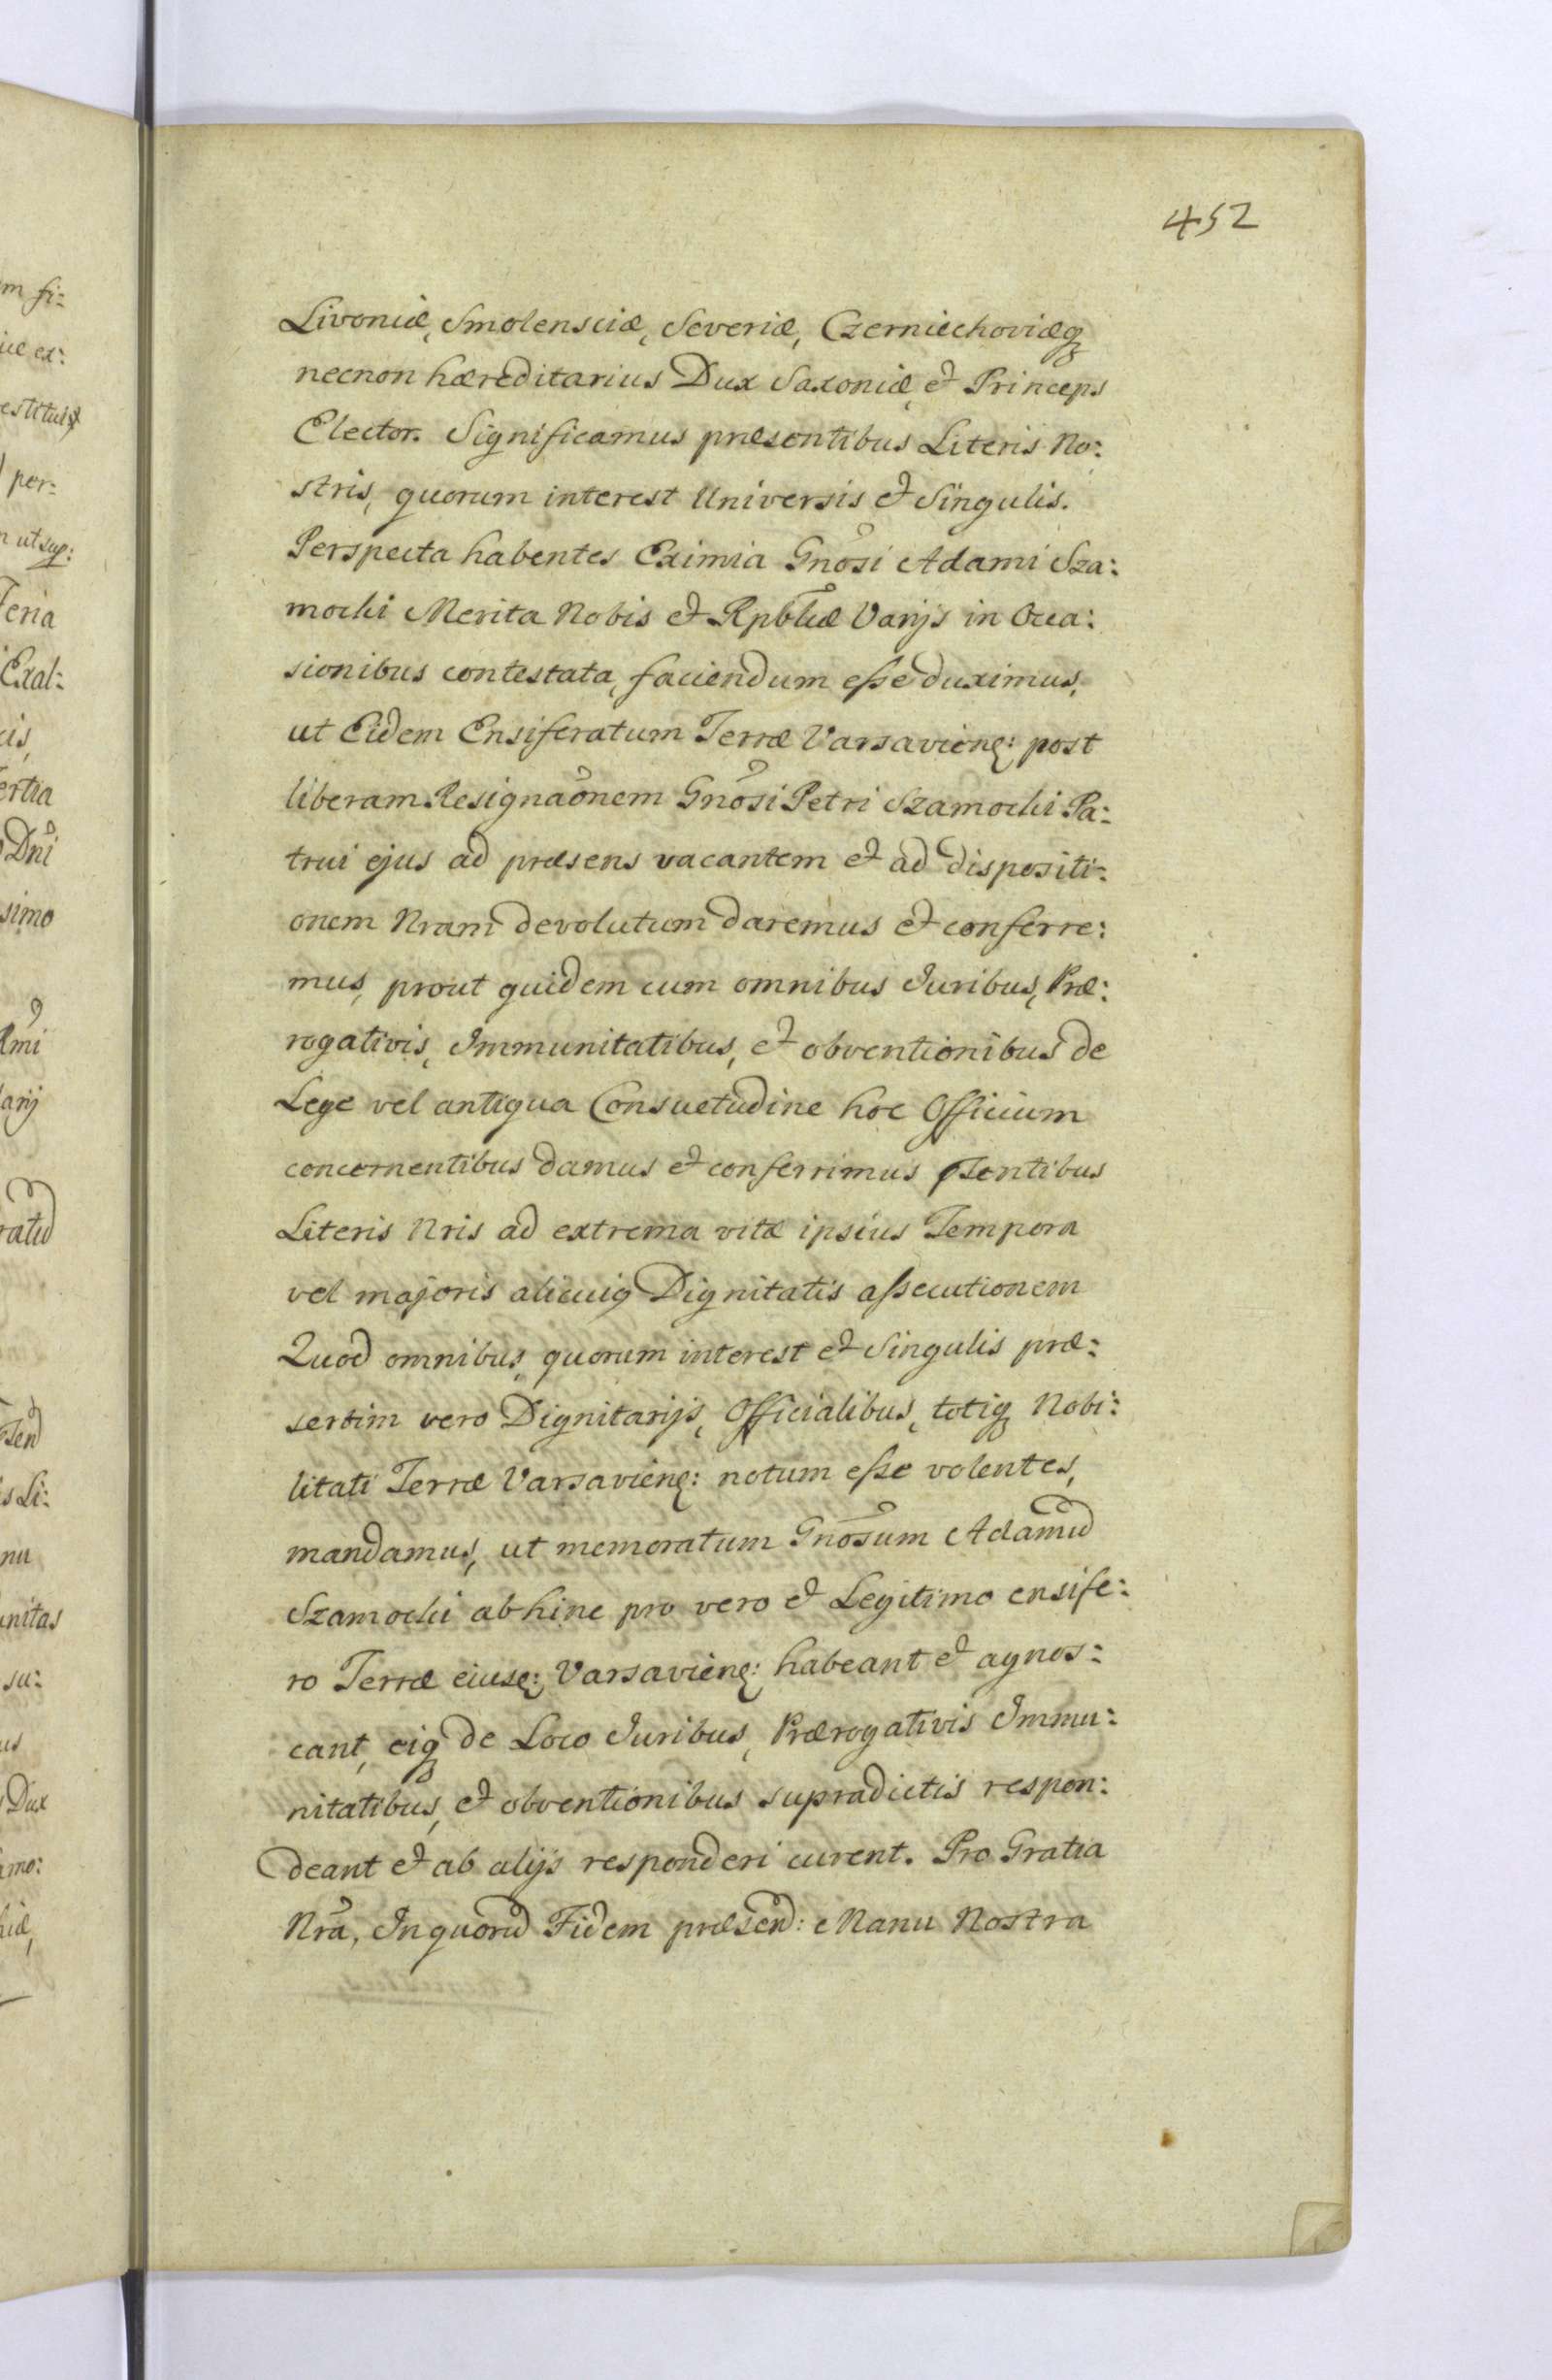 452
Livoniæ, Smolensciæ, Severiæ, Czerniechoviæq
necnon hæreditarius Dux Saxoniæ, et Princeps
Elector. Significamus præsentibus Literis No:
stris, quorum interest Universis et Singulis.
Perspecta habentes Eximia Gnosi Adami Sza:
mocki Merita Nobis et Rpblicæ Varijs in Occa:
sionibus contestata, faciendum esse duximus,
ut Eidem Ensiferatum Terræ Varsavienę: post
liberam Resignaonem Gnosi Petri Szamocki Pa:
trui ejus ad præsens vacantem et ad dispositi:
onem Nram devolutum daremus et conferre:
mus, prout quidem cum omnibus Juribus, Præ:
rogativis, Immunitatibus, et obventionibus de
Lege vel antiqua Consvetudine hoc Officium
concernentibus damus et conferrimus psentibus
Literis Nris ad extrema vitæ ipsius Tempora
vel majoris alicuiq Dignitatis assecutionem
Quod omnibus, quorum interest et Singulis præ:
sertim vero Dignitarijs, Officialibus, totiq Nobi:
litati Terræ Varsavienę: notum esse volentes,
mandamus, ut memoratum Gnosum Adamu
Szamocki abhinc pro vero et Legitimo ensife:
ro Terræ eiusę: Varsavienę: habeant et agnos:
cant, eiq de Loco Juribus, Prærogativis Immu:
nitatibus, et obventionibus supradictis respon:
deant et ab alijs responderi curent. Pro Gratia
Nra, In quoru Fidem præsen: Manu Nostra
m fi:
iæ ex:
per:
ut sup:
Exal:
Dni
simo
Rmi
arij
s Li:
nu
nitas
su:
us
Dux
imo: